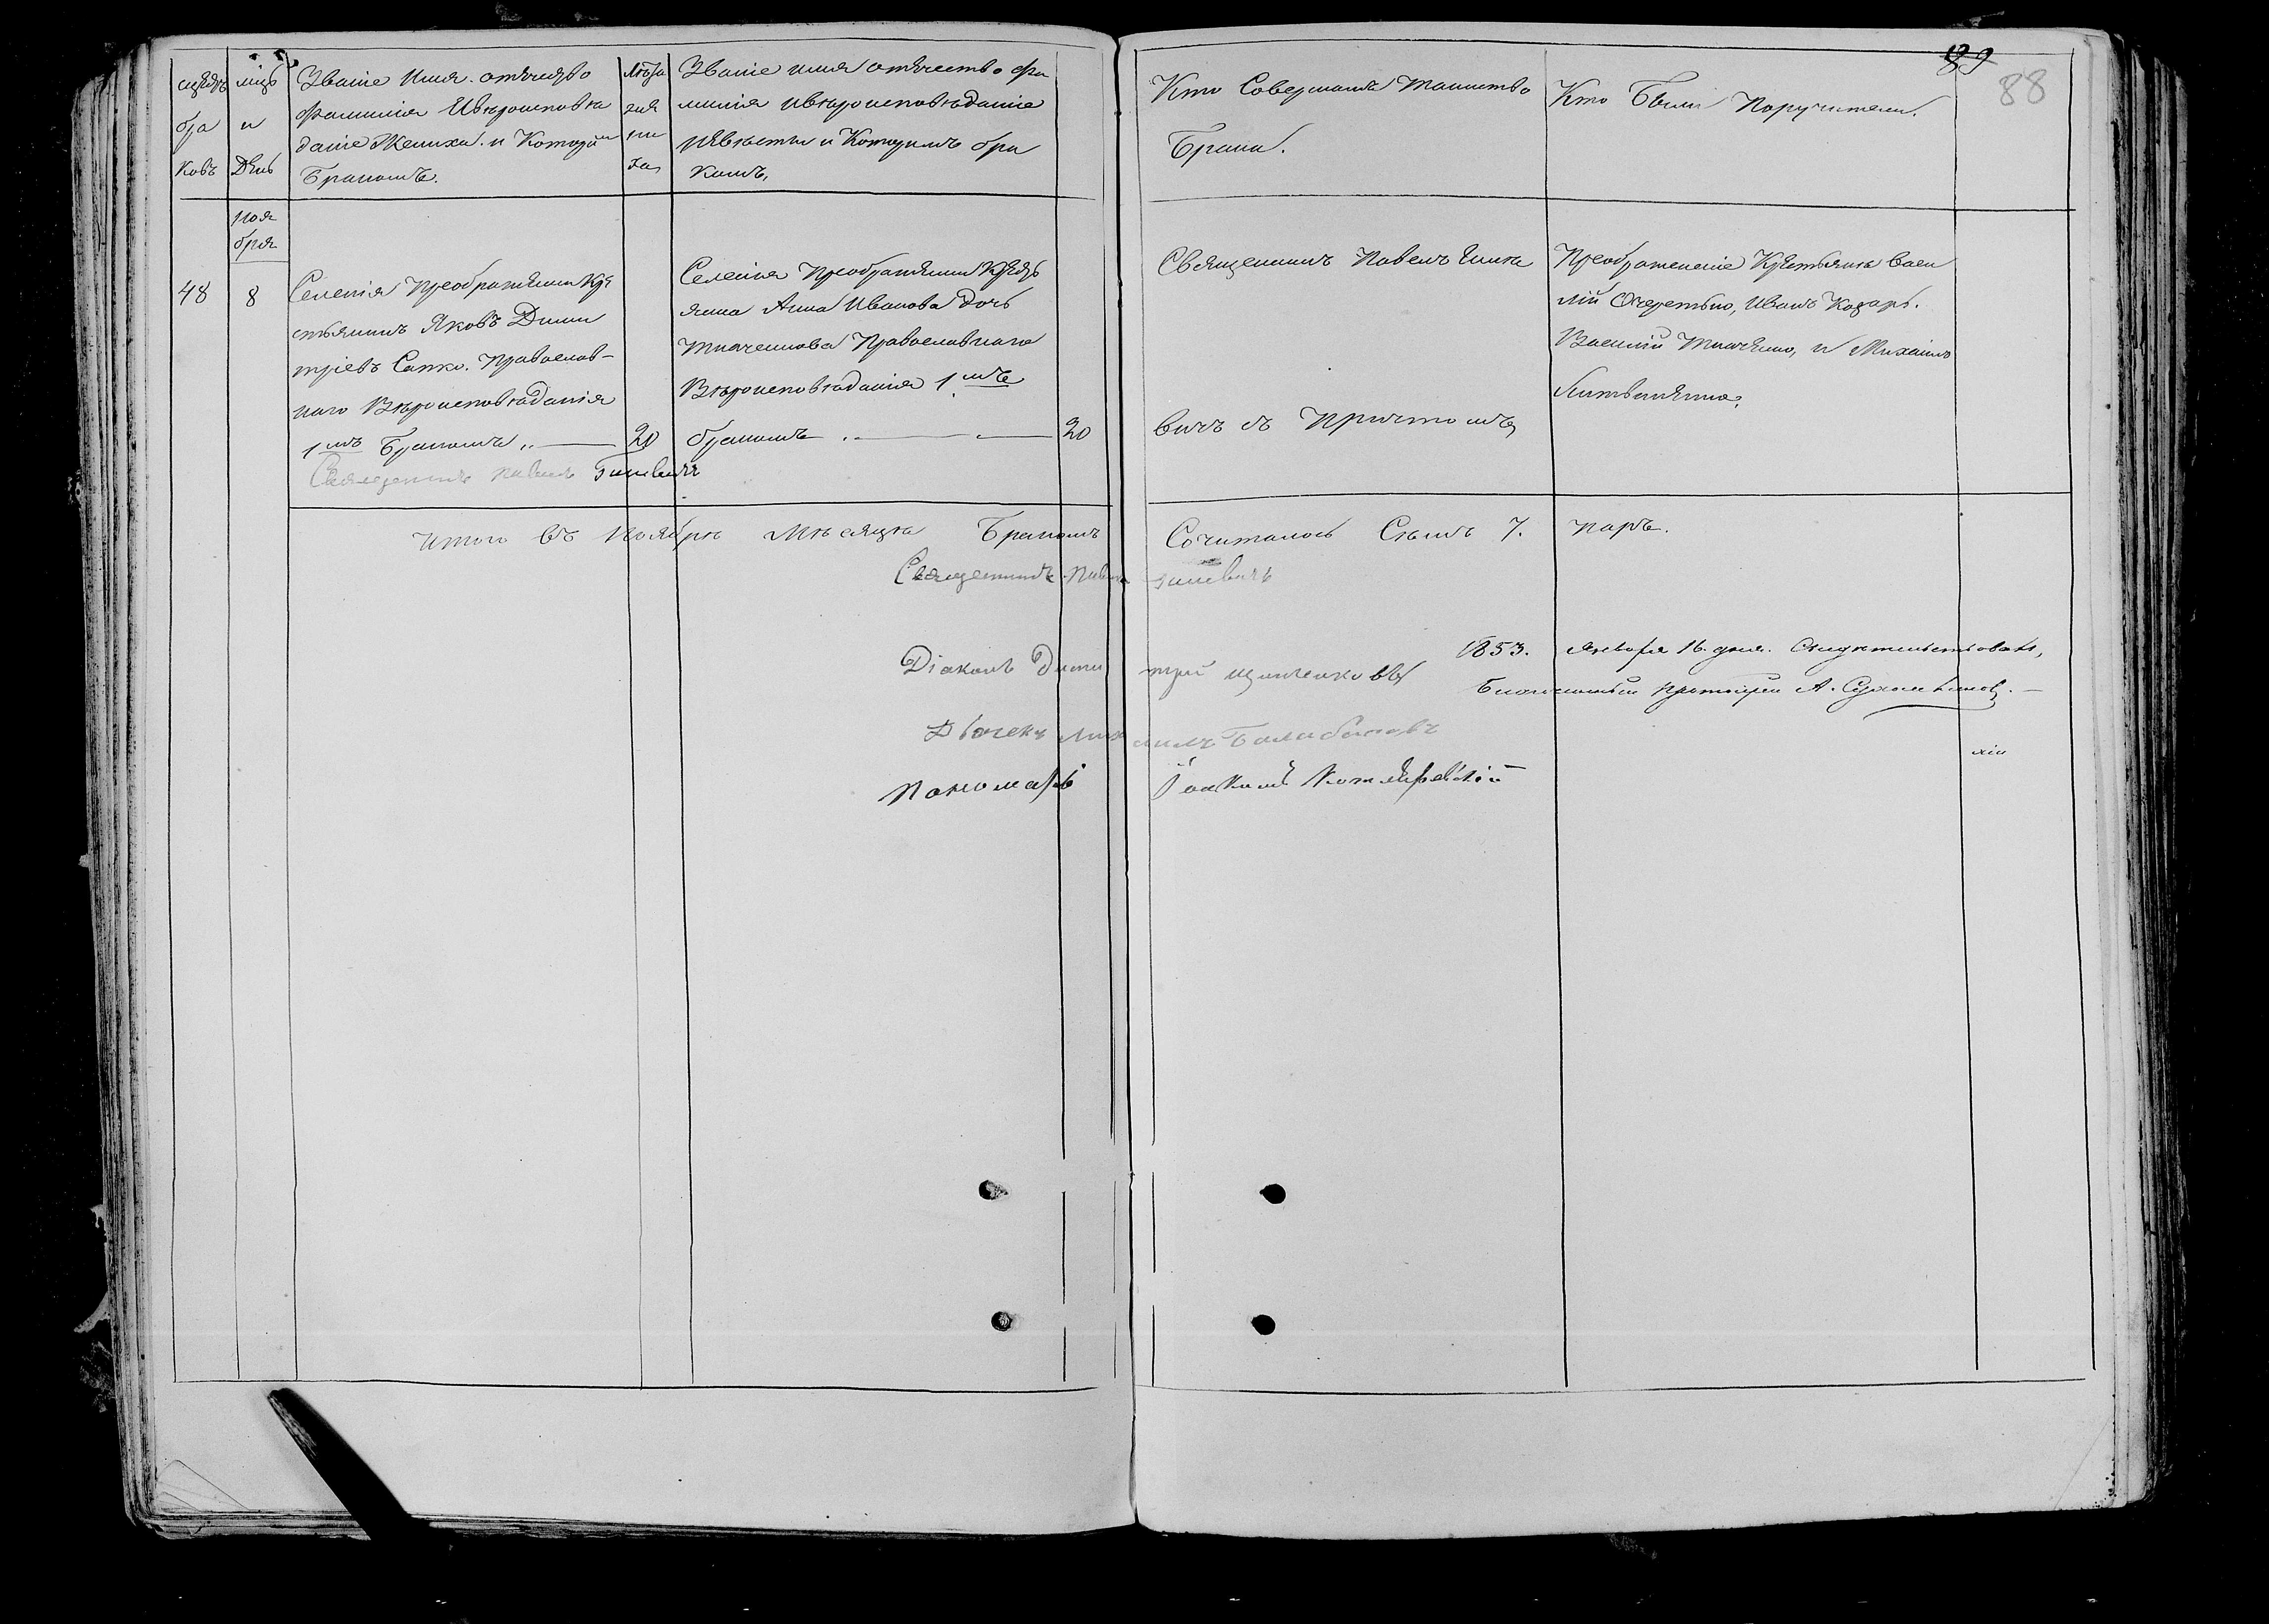 89
88
бра
ковъ
мцъ
и
День
Званіе Имя. отечество
Фамилія Ивѣроисповѣ
даніе Жениха. и Которим
Бракомъ.
Лѣта
Званіе имя отечество фа
милія ивѣроисповѣданіе
Невѣсты и Которимъ бра
комъ,
Кто Совершалъ Таинство
Брака.
Кто Были Поручители.
ноя
бря
48
8
Селенія Преображенки Кре
стьянинъ Яковъ Дими
тріевъ Сапко. Православ-
наго Вѣроисповѣданія
1 мъ Бракомъ.
20
Священникъ Павелъ
Селенія Преображенки Кресть
янка Анна Иванова Дочь
Ткаченкова Православнаго
Вѣроисповѣданія 1 мъ
бракомъ
20
Священникъ Павелъ
вичъ съ Причтомъ,
Преображенкіе Крестьяне Васи
лій Очеретько, Иванъ Козарь.
Василій Ткаченко, и Михаилъ
Литвиненко;
Итого въ Ноябрѣ Мѣсяцѣ Бракомъ Сочиталось Семь 7. паръ.
Священникъ Павелъ
Діаконъ Димитрій
1853. Января 16. дня. Свидѣтельствовалъ,
Благочинный Протоіерей А.
Дьячекъ Михаилъ Балабановъ
Пономарь Іоакимъ Котляревскій